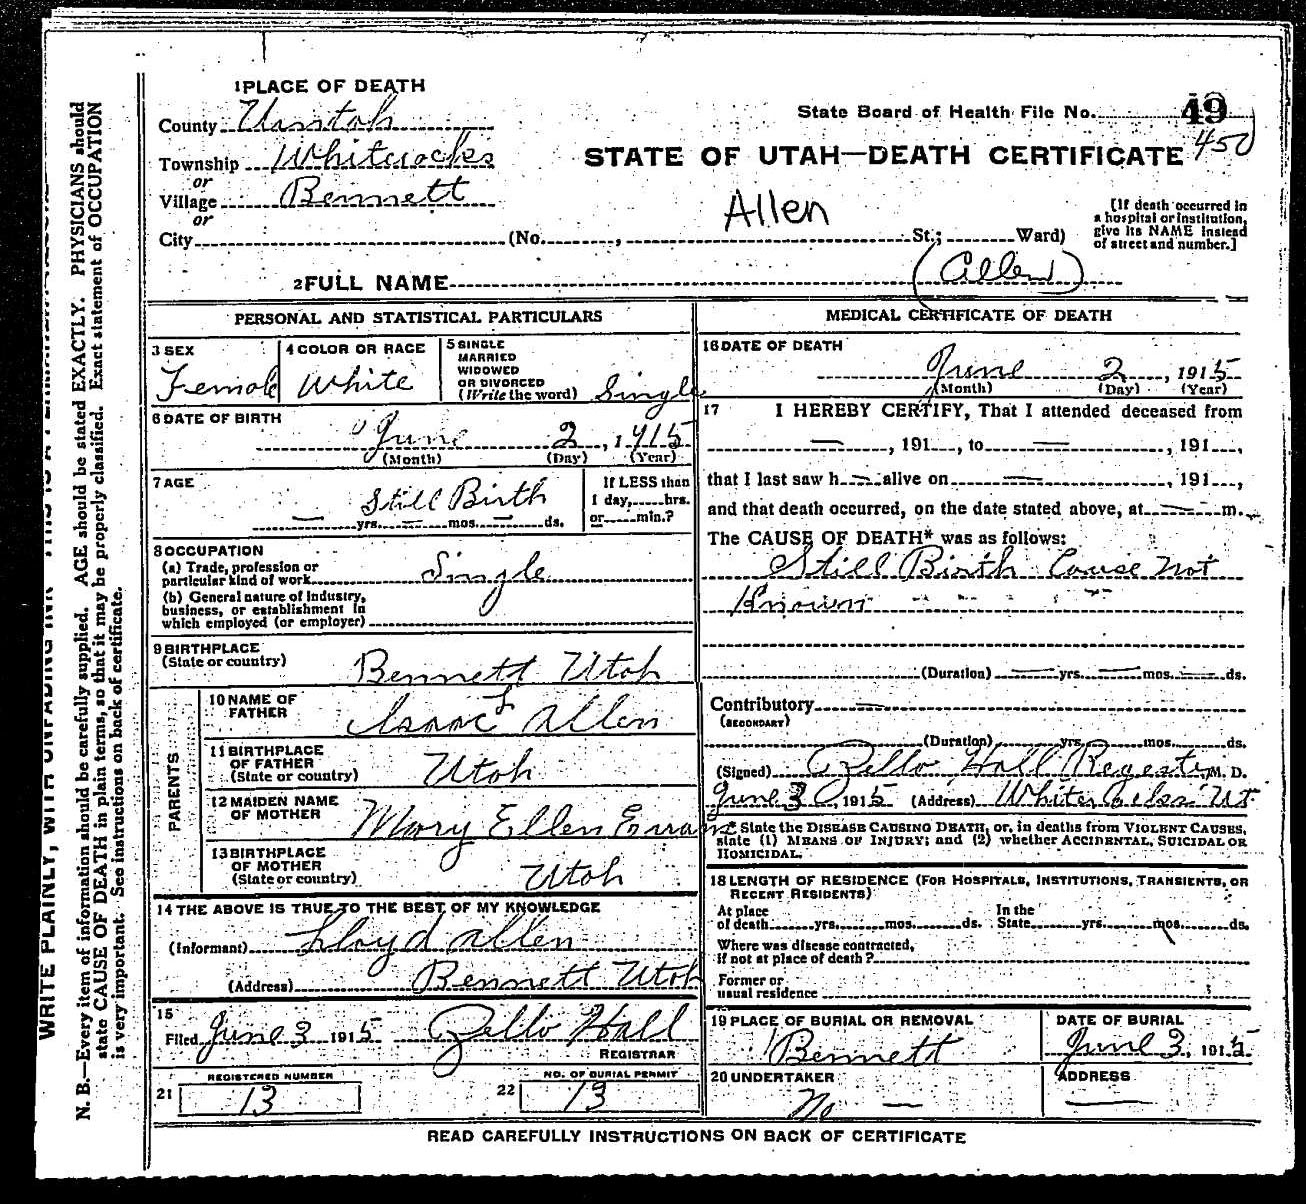 1 PLACE OF DEATH
County Uintah
State Board of Health File No. 49
450
Township Whiterocks
STATE OF UTAH—DEATH CERTIFICATE
or
Village Bennett
or
Allen
[If death occurred in
a hospital or institution,
give its NAME instead
of street and number.]
City (No. , St.; Ward)
2 FULL NAME (Allen)
PERSONAL AND STATISTICAL PARTICULARS
3 SEX
Female
4 COLOR OR RACE
White
5 SINGLE
MARRIED
WIDOWED
OR DIVORCED
(Write the word) Single
6 DATE OF BIRTH
June 2, 1915
(Month) (Day) (Year)
7 AGE
Still Birth
— yrs. — mos. — ds.
If LESS than
1 day, hrs.
or min.?
8 OCCUPATION
(a) Trade, profession or
particular kind of work Single
(b) General nature of industry,
business, or establishment in
which employed (or employer)
9 BIRTHPLACE
(State or country)
Bennett Utah
PARENTS
10 NAME OF
FATHER
Isaac L Allen
11 BIRTHPLACE
OF FATHER
(State or country) Utah
12 MAIDEN NAME
OF MOTHER Mary Ellen Evans
13 BIRTHPLACE
OF MOTHER
(State or country) Utah
14 THE ABOVE IS TRUE TO THE BEST OF MY KNOWLEDGE
(Informant) Lloyd Allen
(Address) Bennett Utah
15
Filed June 3 1915 Zello Hall
REGISTRAR
REGISTERED NUMBER
21 13
NO. OF BURIAL PERMIT
22 13
MEDICAL CERTIFICATE OF DEATH
16 DATE OF DEATH
June 2, 1915
(Month) (Day) (Year)
17 I HEREBY CERTIFY, That I attended deceased from
—, 191 , to —, 191 ,
that I last saw h— alive on —, 191 ,
and that death occurred, on the date stated above, at — m.
The CAUSE OF DEATH* was as follows:
Still Birth Cause Not
Known
(Duration) — yrs. — mos. — ds.
Contributory —
(SECONDARY)
(Duration) yrs. mos. ds.
(Signed) Zello Hall M. D.
June 3, 1915 (Address) Ut.
* State the DISEASE CAUSING DEATH, or, in deaths from VIOLENT CAUSES,
state (1) MEANS OF INJURY; and (2) whether ACCIDENTAL, SUICIDAL OR
HOMICIDAL.
18 LENGTH OF RESIDENCE (FOR HOSPITALS, INSTITUTIONS, TRANSIENTS, OR
RECENT RESIDENTS)
At place In the
of death yrs. mos. ds. State yrs. mos. ds.
Where was disease contracted,
if not at place of death?
Former or
usual residence
19 PLACE OF BURIAL OR REMOVAL
Bennett
DATE OF BURIAL
June 3, 1915
20 UNDERTAKER
No —
ADDRESS
—
READ CAREFULLY INSTRUCTIONS ON BACK OF CERTIFICATE
WRITE PLAINLY, WITH UNFADING INK
N. B.—Every item of information should be carefully supplied. AGE should be stated EXACTLY. PHYSICIANS should
state CAUSE OF DEATH in plain terms, so that it may be properly classified. Exact statement of OCCUPATION
is very important. See instructions on back of certificate.